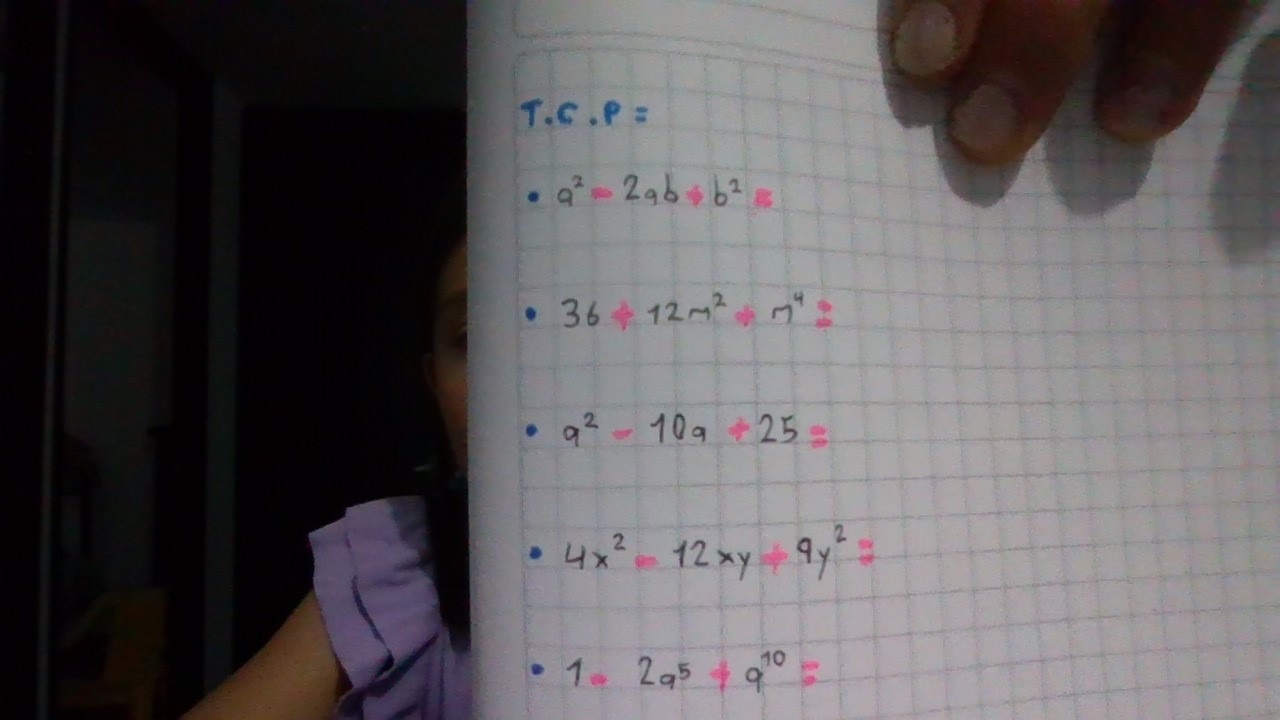 T.C.P =
• a² - 2ab + b² =
• 36 + 12m² + m⁴ =
• a² - 10a + 25 =
• 4x² - 12xy + 9y² =
• 1 - 2a⁵ + a¹⁰ =